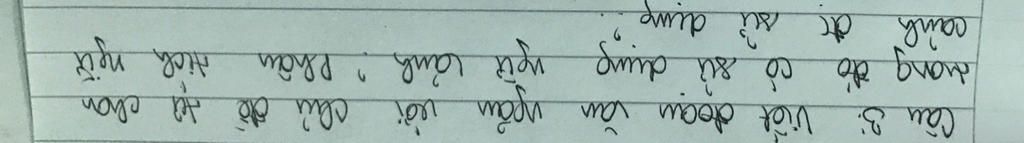 Câu 3: Viết đoạn văn ngắn với chủ đề tự chọn
trong đó có sử dụng ngữ cảnh. Phân tích ngữ
cảnh đc sử dụng.